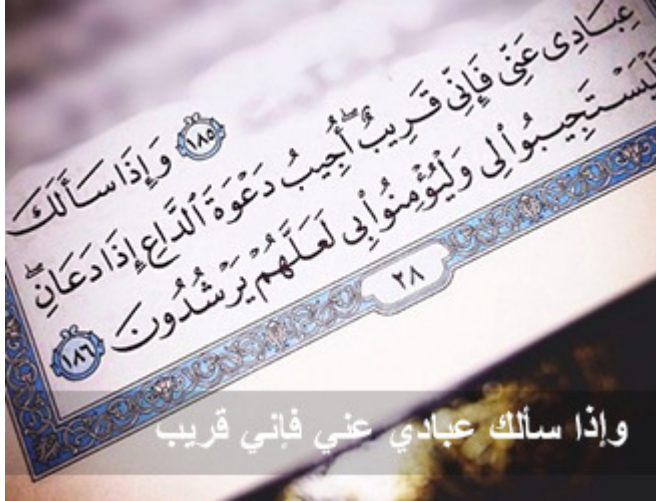 ١٨٥ وَإِذَا سَأَلَكَ
عِبَادِى عَنِّى فَإِنِّى قَرِيبٌ ۖ أُجِيبُ دَعْوَةَ ٱلدَّاعِ إِذَا دَعَانِ ۖ
فَلْيَسْتَجِيبُوا۟ لِى وَلْيُؤْمِنُوا۟ بِى لَعَلَّهُمْ يَرْشُدُونَ ١٨٦
٢٨
وإذا سألك عبادي عني فإني قريب